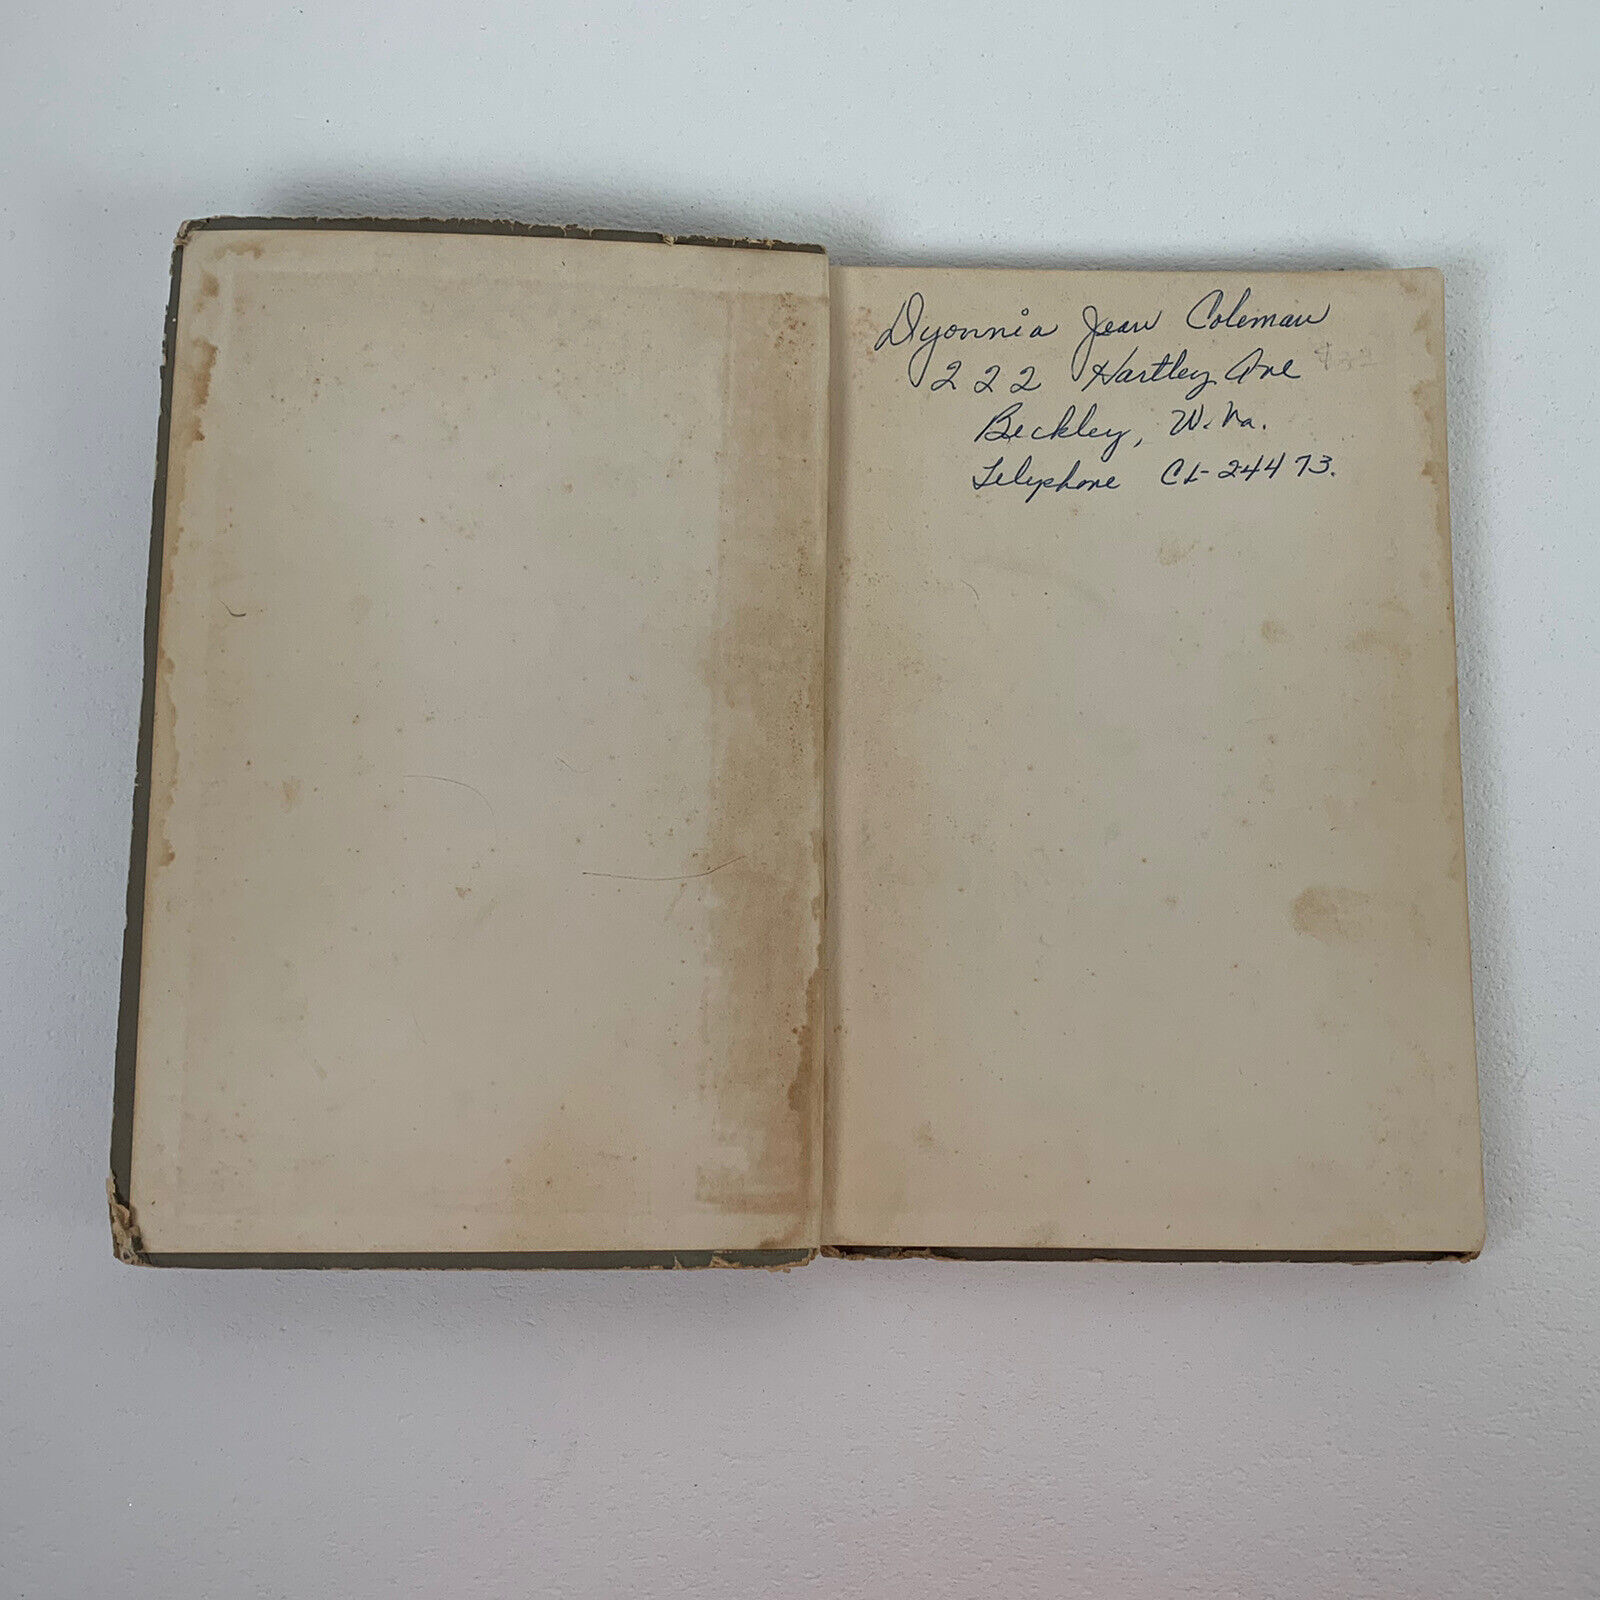 Dyonnia Jean Coleman
222 Hartley Ave
Beckley, W. Va.
Telephone CL-24473.